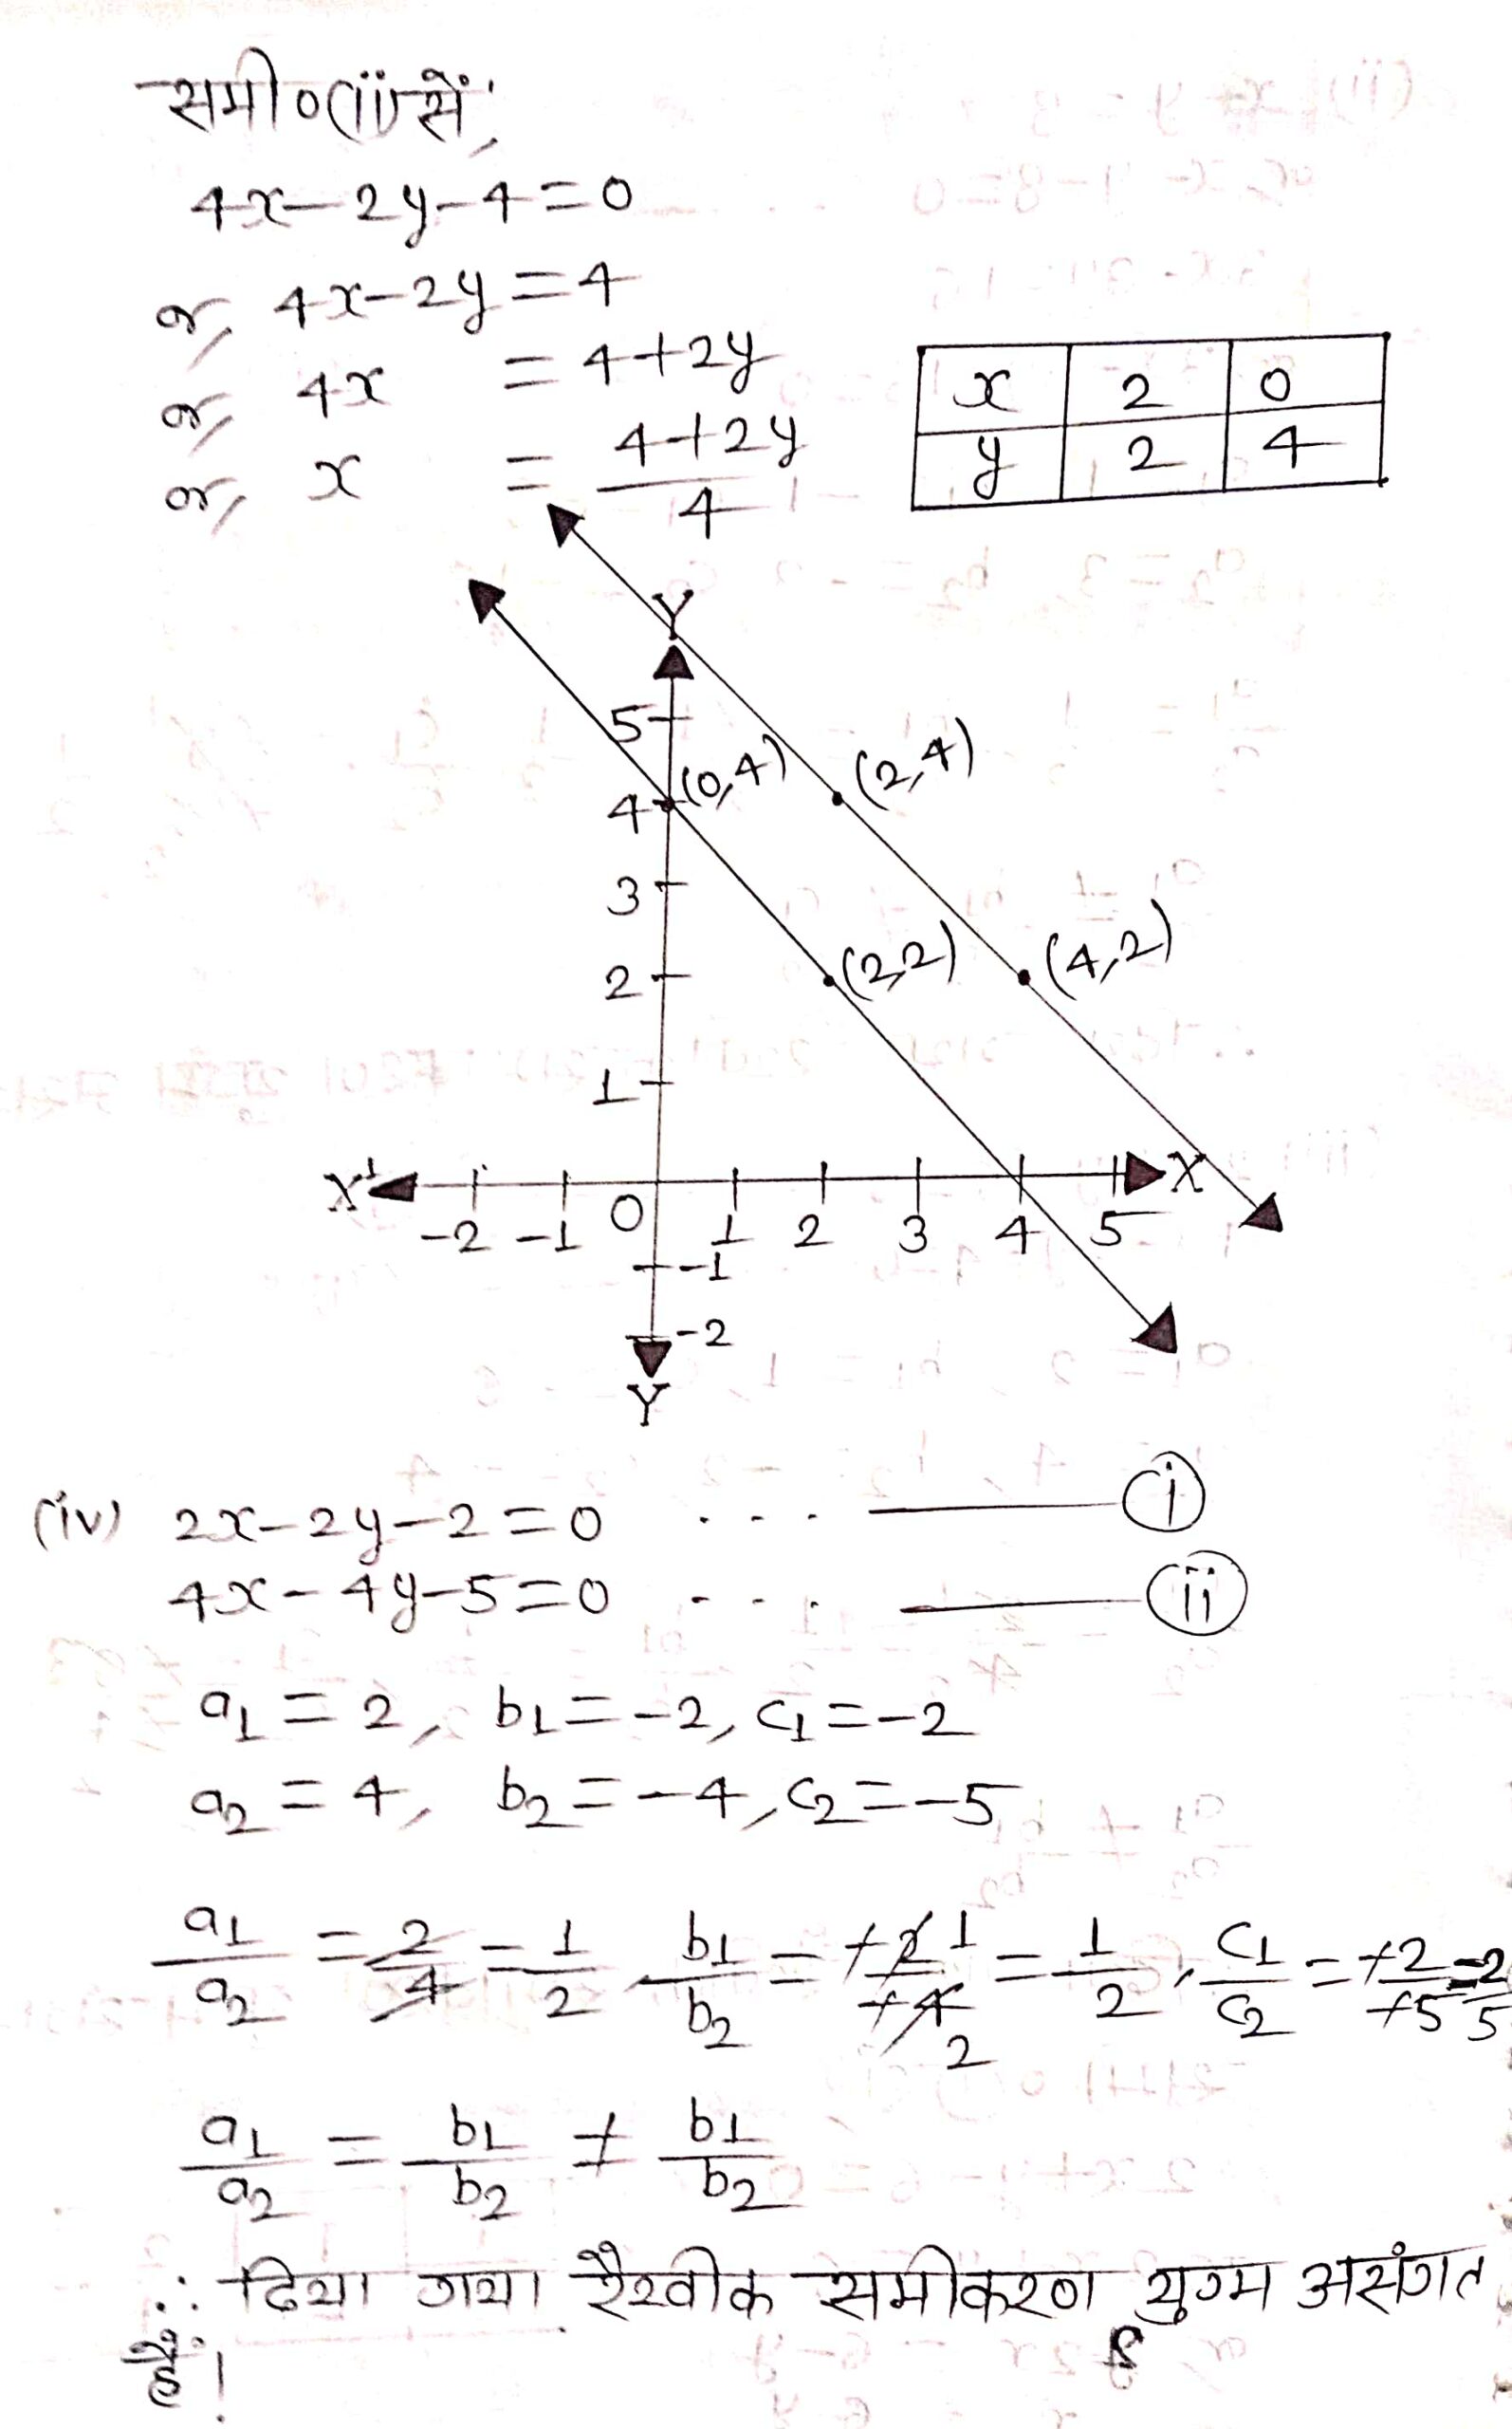 समी०(ii) सें,
4x-2y-4=0
or, 4x-2y=4
or, 4x = 4+2y
or, x = (4+2y)/4
x 2 0
y 2 4
Y
5
(0,4) (2,4)
4
3
2 (2,2) (4,2)
1
X' X
-2 -1 0 1 2 3 4 5
-1
-2
Y
(iv) 2x-2y-2=0 ... (i)
4x-4y-5=0 ... (ii)
a1=2, b1=-2, c1=-2
a2=4, b2=-4, c2=-5
a1/a2 = 2/4 = 1/2 b1/b2 = +2 1/+4 2 = 1/2, c1/c2 = +2/+5 = 2/5
a1/a2 = b1/b2 ≠ b1/b2
∴ दिया गया रैखीक समीकरण युग्म असंगत
हैं।